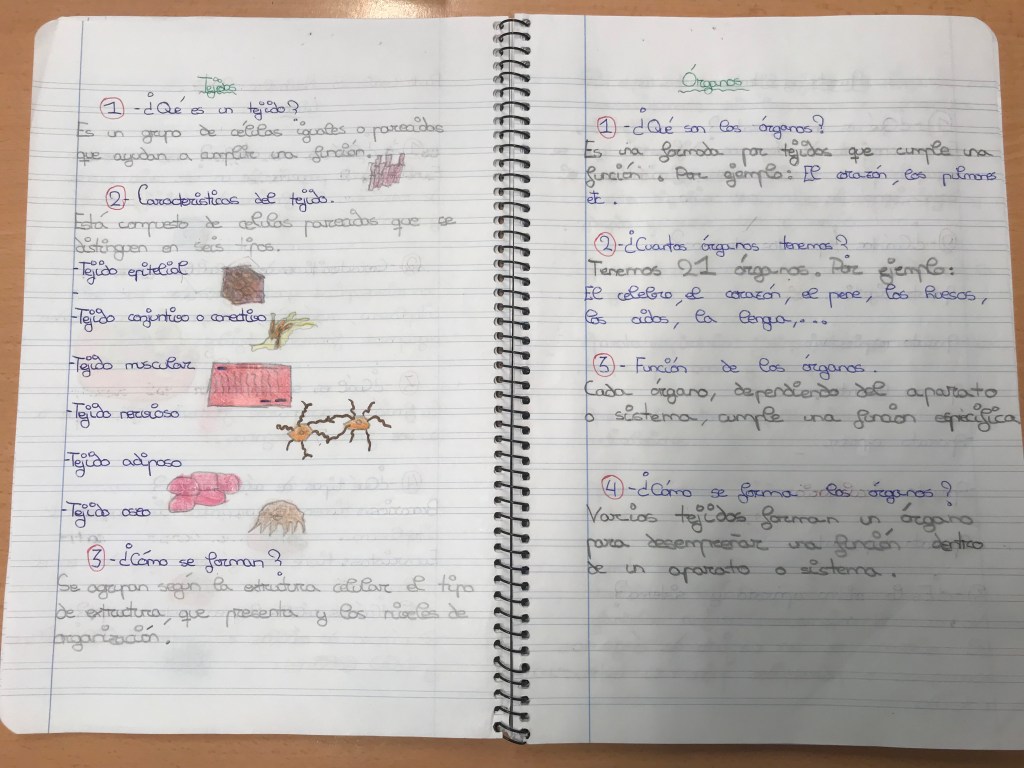 Tejidos
1 - ¿Qué es un tejido?
Es un grupo de células iguales o pareadas
que ayudan a amplir una función.
2 - Características del tejido.
Está compuesto de celulas pareadas que se
distinguen en seis tipos.
- Tejido epitelial
-
- Tejido conjuntiso o conectiso
- Tejido muscular
- Tejido nersioso
- Tejido adiposo
- Tejido oseo
3 - ¿Cómo se forman?
Se agrupan según la estructura celular el tipo
de estructura, que presenta y los niveles de
organización.
Órganos
1 - ¿Qué son los órganos?
Es una formada por tejidos que cumple una
función. Por ejemplo: El corazón, los pulmones
etc.
2 - ¿Cuantos órganos tenemos?
Tenemos 21 órganos. Por ejemplo:
El celebro, el corazón, el pene, los huesos,
los oidos, la lengua,...
3 - Función de los órganos.
Cada órgano, dependiendo del aparato
o sistema, cumple una función especifica
4 - ¿Cómo se forma los órganos?
Varios tejidos forman un órgano
para desempeñar una función dentro
de un aparato o sistema.